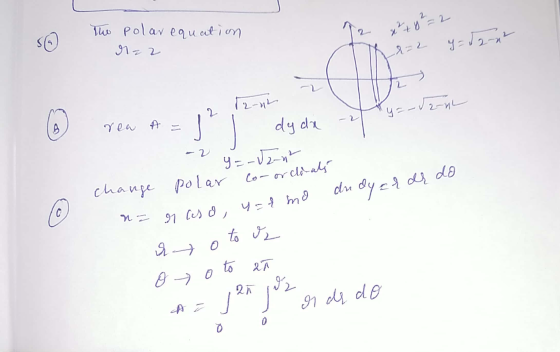 5(a) The polar equation
r = 2
x²+y²=2
r=2
y=√2-x²
2
-2
2
-2
y=-√2-x²
(B) rea A = ∫_{-2}^{2} ∫_{y=-√2-x²}^{√2-x²} dy dx
(C) change polar co-ordinats
x = r cos θ, y = r sinθ dx dy = r dr dθ
r → 0 to √2
θ → 0 to 2π
A = ∫_0^{2π} ∫_0^{√2} r dr dθ